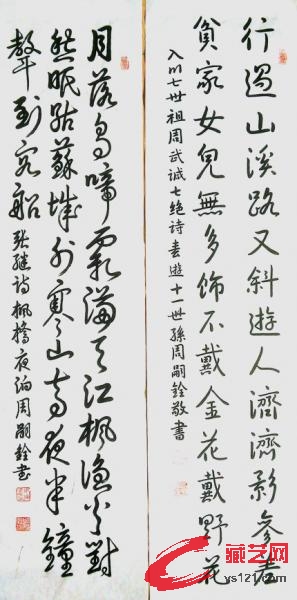 行過山溪路又斜遊人濟濟影參差
貧家女兒無多飾不戴金花戴野花
入川七世祖周武诚七绝诗春遊十一世孫周嗣銓敬書
月落烏啼霜滿天江楓渔火對
愁眠姑蘇城外寒山寺夜半鐘
聲到客船 张继诗楓橋夜泊周嗣銓書
藏艺网
ys121.com